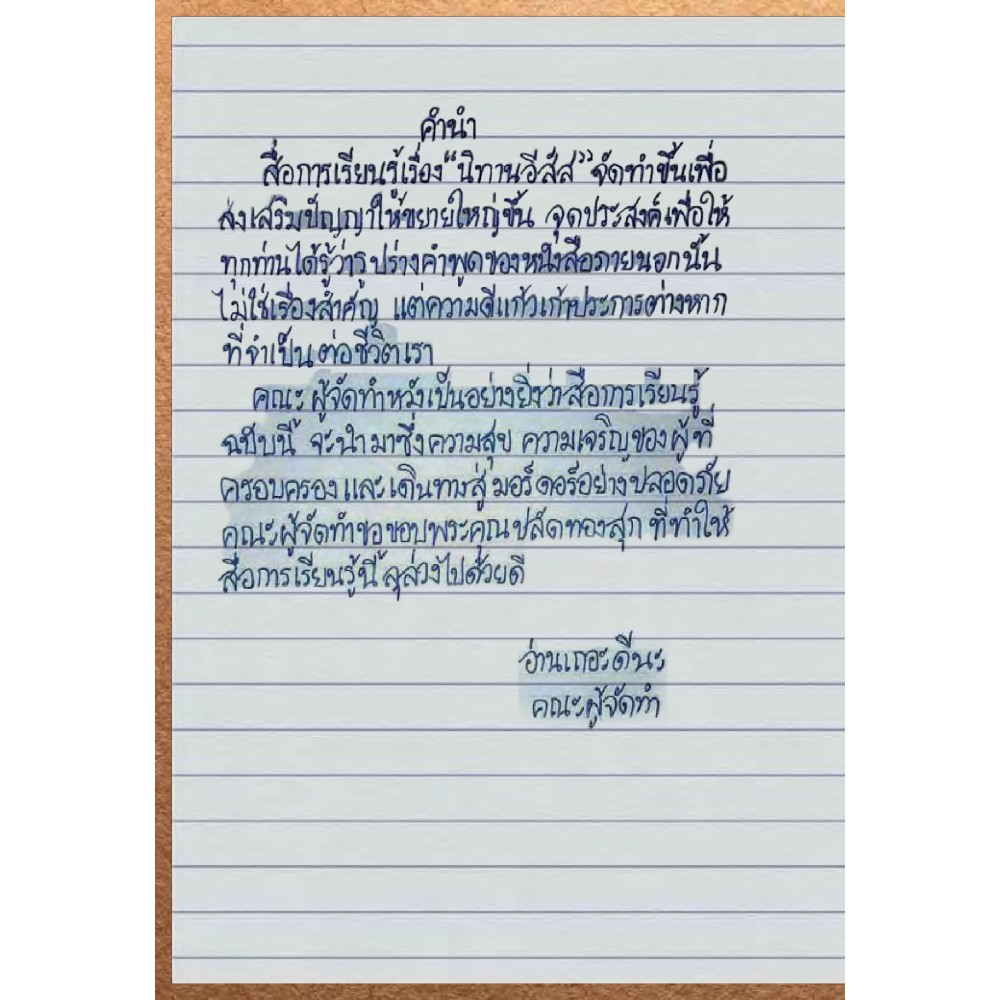 คำนำ
สื่อการเรียนรู้เรื่อง “นิทานวีสัส” จัดทำขึ้นเพื่อ
ส่งเสริมปัญญาให้ขยายใหญ่ขึ้น จุดประสงค์เพื่อให้
ทุกท่านได้รู้ว่ารูปร่างคำพูดของหนังสือภายนอกนั้น
ไม่ใช่เรื่องสำคัญ แต่ความดีแก้วเก้าประการต่างหาก
ที่จำเป็นต่อชีวิตเรา
คณะผู้จัดทำหวังเป็นอย่างยิ่งว่าสื่อการเรียนรู้
ฉบับนี้ จะนำมาซึ่งความสุข ความเจริญของผู้ที่
ครอบครอง และเดินทางสู่มอร์ดอร์อย่างปลอดภัย
คณะผู้จัดทำขอขอบพระคุณปลัดทองสุก ที่ทำให้
สื่อการเรียนรู้นี้ลุล่วงไปด้วยดี
อ่านเถอะดีนะ
คณะผู้จัดทำ